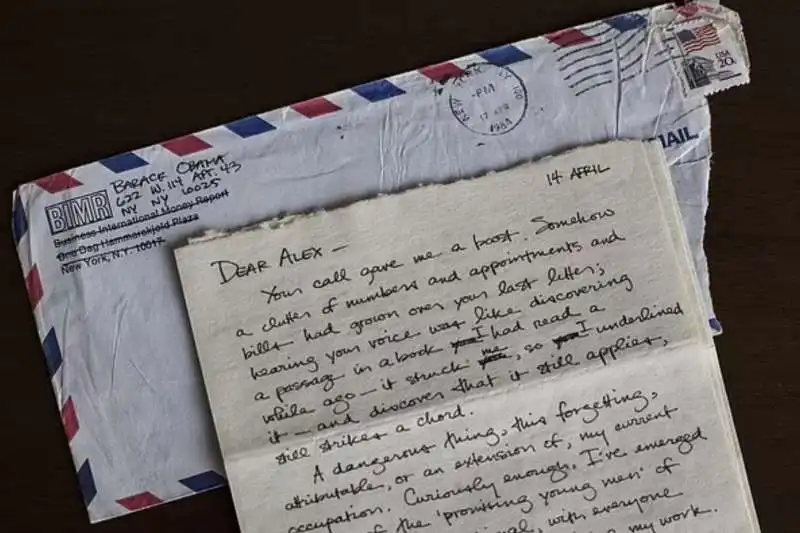 USA
20c
NEW YORK, NY
PM
17 APR
1984
MAIL
BARACK OBAMA
622 W. 114 APT. 43
NY NY 10025
BIMR
Business International Money Report
One Dag Hammarskjold Plaza
New York, N.Y. 10017
14 APRIL
DEAR ALEX —
Your call gave me a boost. Somehow
a clutter of numbers and appointments and
bills had grown over your last letter;
hearing your voice was like discovering
a passage in a book you I had read a
while ago — it struck you me, so you I underlined
it — and discover that it still applies,
still strikes a chord.
A dangerous thing, this forgetting,
attributable, or an extension of, my current
occupation. Curiously enough, I've emerged
of the 'promising young men' of
with everyone
my work.